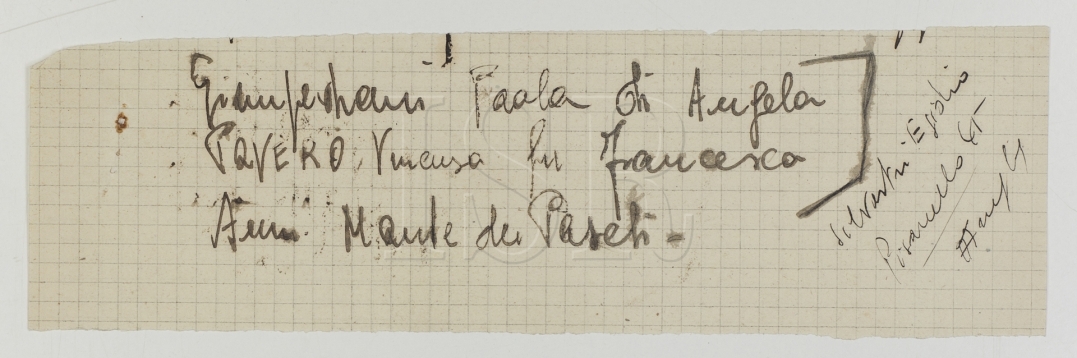 Giampedroni Paola di Angela
PAVERO Vincenza fu Francesco
Amm. Monte dei Paschi -
Silvestri Egidio
Pisanello